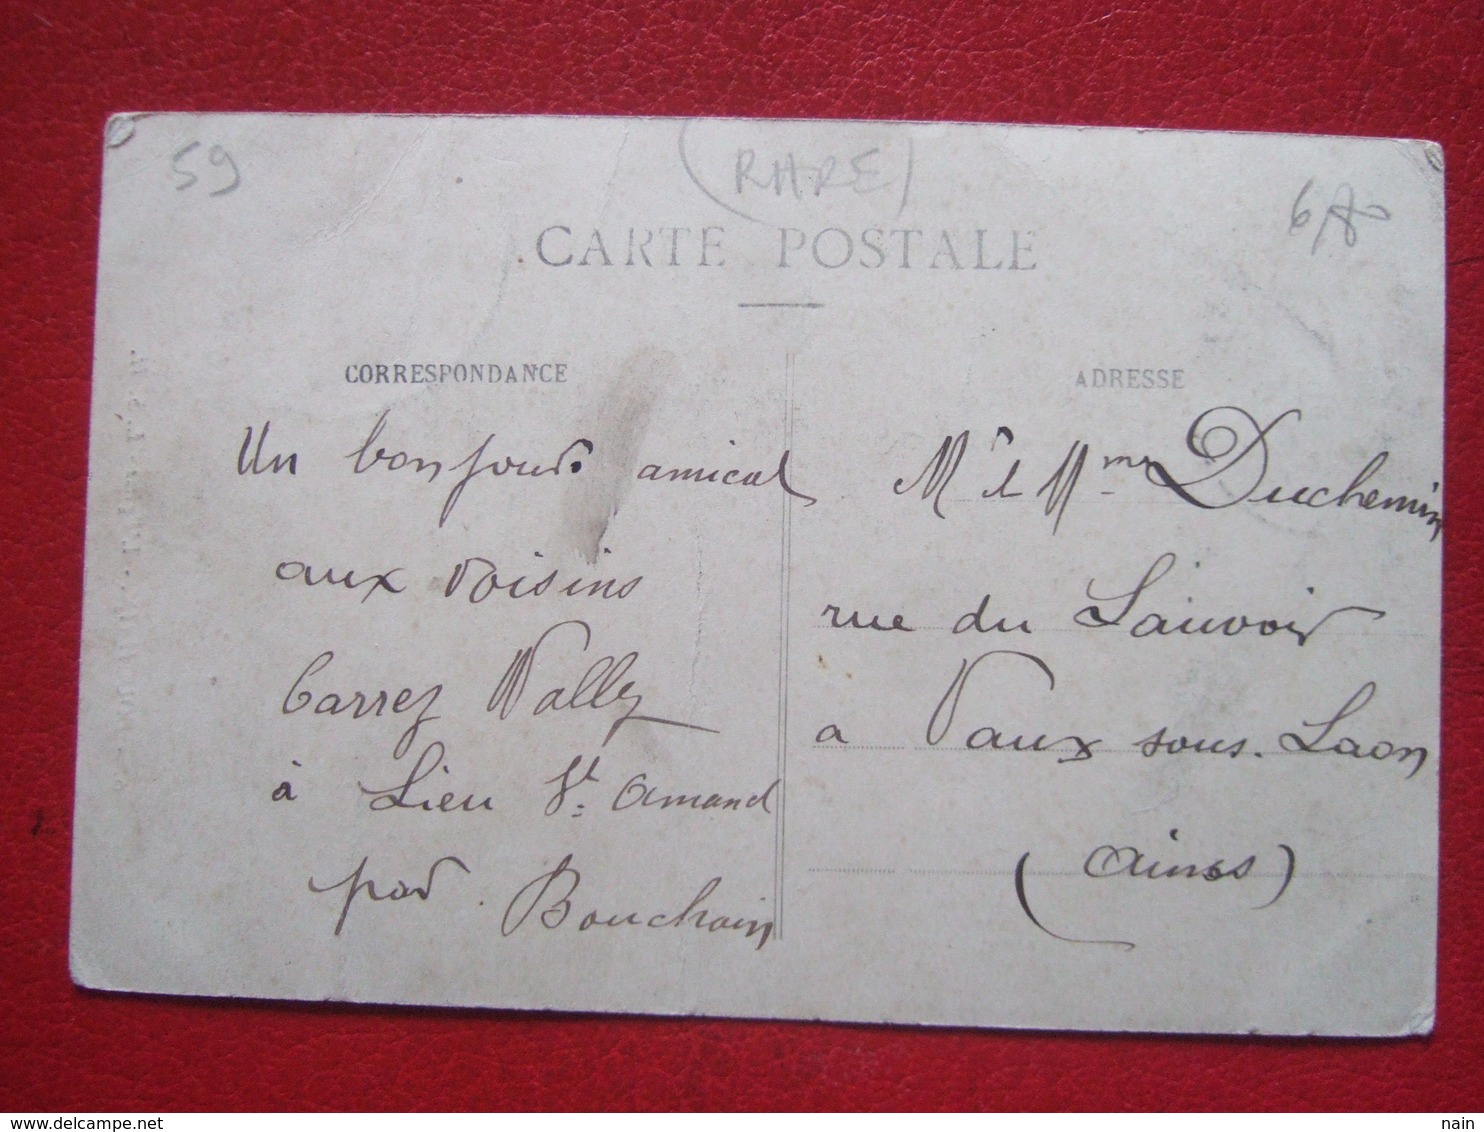 59
(RARE)
CARTE POSTALE
CORRESPONDANCE
Un bonjour amical
aux voisins
Carrez Wally
à Lieu St. Amand
par Bouchain
ADRESSE
Mr & Mme Duchemin
rue du
a Vaux sous-Laon
(Aines)
delcampe.net
nain